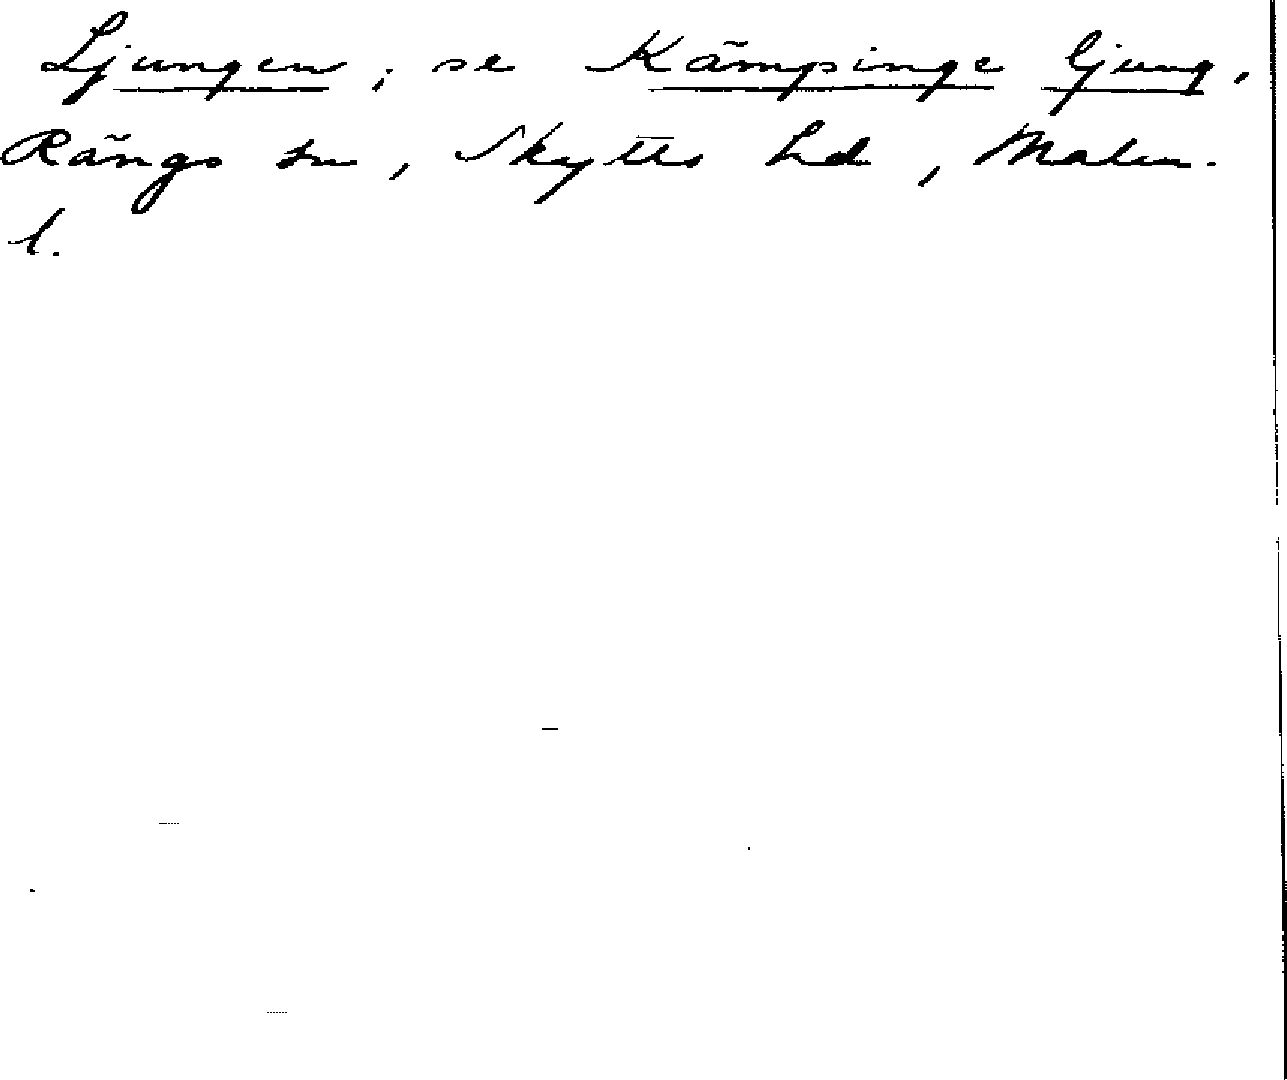 Ljungen, se Kämpinge ljung,
Rängs sn, Skytts hd, Malm.
l.